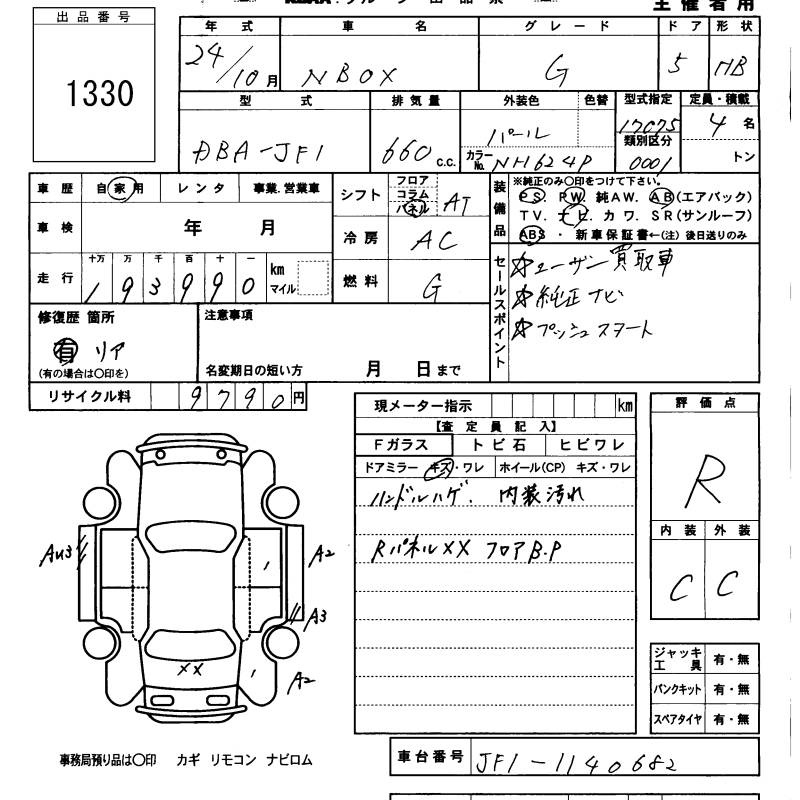 主催者用
出品番号
1330
年式 車名 グレード ドア 形状
24/10月 NBOX G 5 HB
型式 排気量 外装色 色替 型式指定 定員・積載
DBA-JF1 660 c.c. パール 17075 4名
カラーNo. NH624P 類別区分 0001 トン
車歴 自家用 レンタ 事業.営業車
車検 年 月
走行 十万 万 千 百 十 一 km マイル
193990
シフト フロア コラム パネル AT
冷房 AC
燃料 G
装備品
※純正のみ〇印をつけて下さい。
PS. PW. 純AW. AB(エアバック)
TV. ナビ. カワ. SR(サンルーフ)
ABS ・ 新車保証書←(注) 後日送りのみ
セールスポイント
☆ユーザー買取車
☆純正ナビ
☆プッシュスタート
修復歴 箇所
有 リア
(有の場合は〇印を)
注意事項
名変期日の短い方 月 日まで
リサイクル料 9790円
現メーター指示 km
【査定員記入】
Fガラス トビ石 ヒビワレ
ドアミラー キズ・ワレ ホイール(CP) キズ・ワレ
ハンドルハゲ. 内装汚れ
Rパネルxx フロアB.P
評価点
R
内装 外装
C C
AU3
A2
A3
A2
XX
ジャッキ工具 有・無
パンクキット 有・無
スペアタイヤ 有・無
事務局預り品は〇印 カギ リモコン ナビロム
車台番号 JF1-1140682